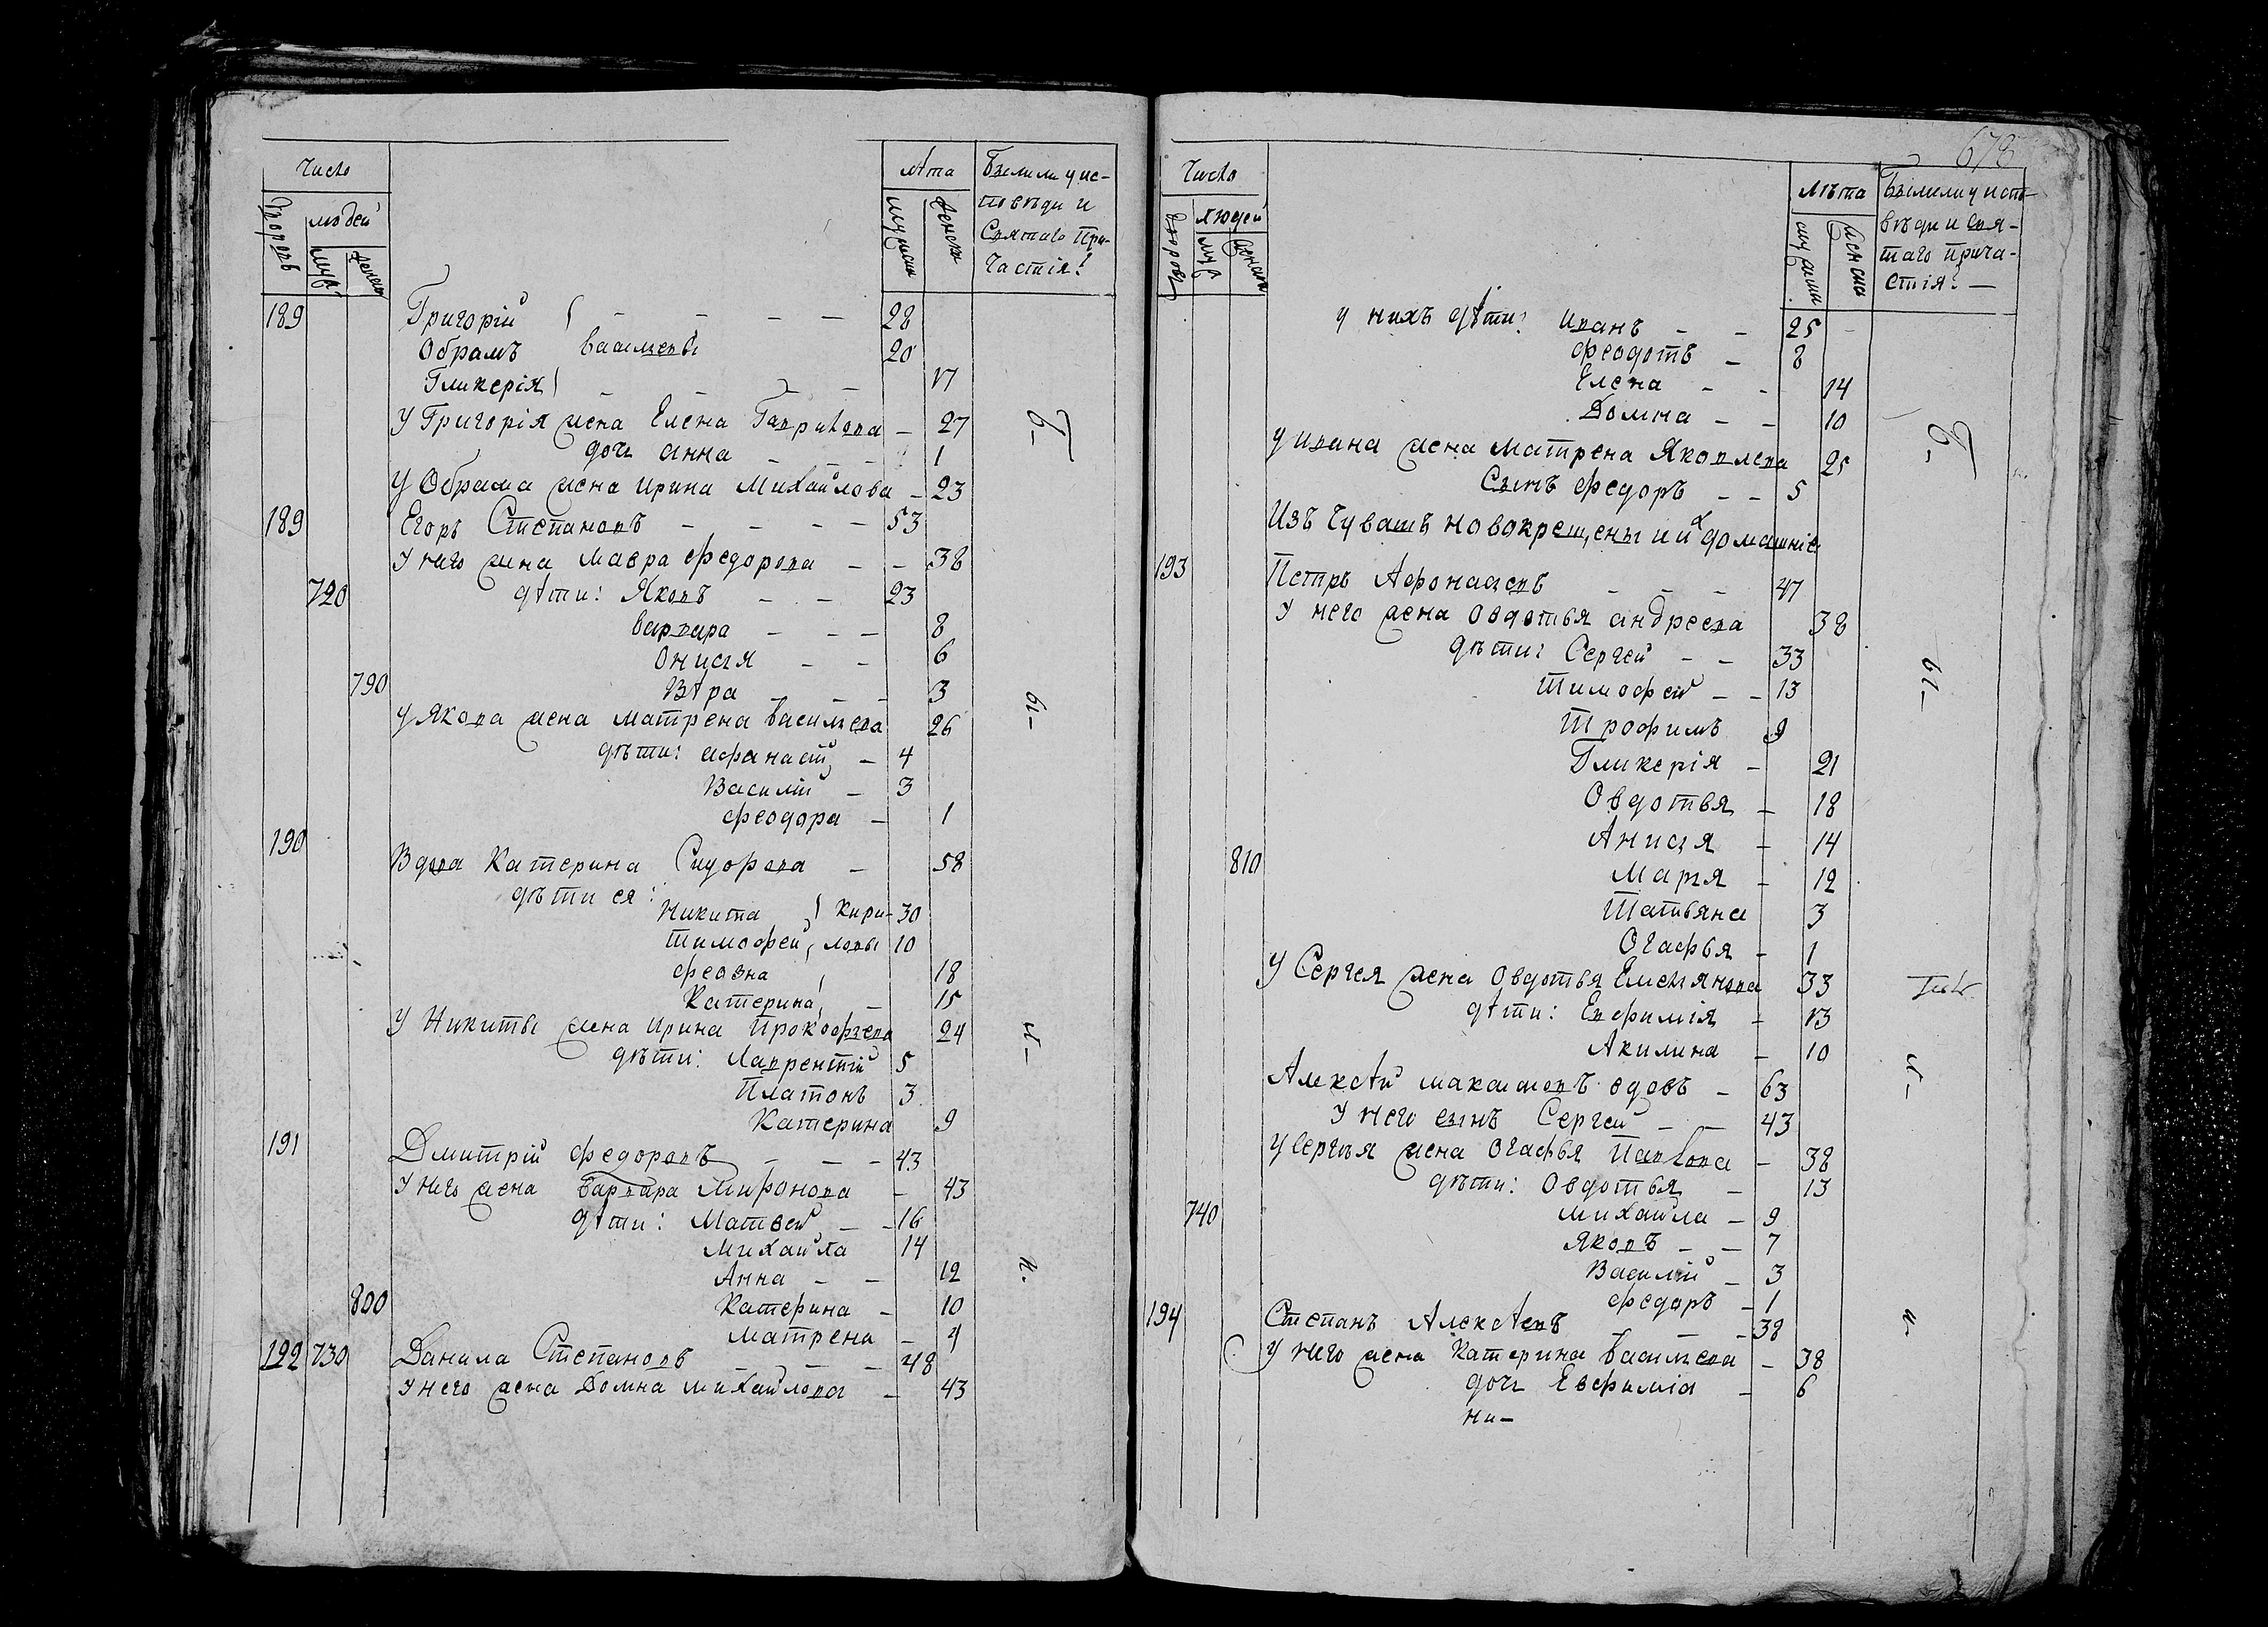 Число
дворовъ
людей
муж:
женск:
лѣта
мужски
женски
Были ли у ис-
повѣди и
Святаго При-
частія?
189 Григорій } - - - - 28
Обрамъ } Васильевы 20
Гликерія } - - - 17
У Григорія жена Елена Гаврилова - 27
дочь анна - - - 1
У Обрама жена Ирина Михайлова - 23
189 Егоръ Степановъ - - - - 53
У него жена Мавра Федорова - - 38
720 дѣти: Яковъ - - 23
Варвара - - - 8
Онисья - - 6
790 Вѣра - - - 3
У Якова жена матрена Васильева 26
дѣти: афанасій - 4
Василій - 3
Феодора - 1
190
Вдова Катерина Сидорова - 58
дѣти ея:
Никита } Кири- 30
Тимофей } ловы 10
Феозна 18
Катерина - 15
У Никиты жена Ирина Прокофьева 24
дѣти: Лаврентій 5
Платонъ 3
Катерина 9
191 Дмитрій Федоровъ - - - 43
У него жена Варвара Миронова - 43
дѣти: Матвей - - 16
Михайла 14
Анна - - 12
800 Катерина - 10
Матрена - 4
192 730 Данила Степановъ - - - 48
У него жена Домна михайлова - 43
бы-
л-
и.
678
Число
дворовъ
людей
муж
женска
лѣта
мужски
женска
Были ли у испо-
вѣди и Свя-
таго Прича-
стія? -
у нихъ дѣти: Иванъ - - 25
Феодотъ - 8
Елена - - 14
Домна - - 10
у ивана жена Матрена Яковлева 25
Сынъ Федоръ - - 5
Изъ Чувашъ новокрещены и ихъ домашніе
193 Петръ Афонасьевъ - - - 47
У него жена Овдотья андреева 38
дѣти: Сергей - - 33
Тимофей - - 13
Трофимъ 9
Гликерія - 21
Овдотья - 18
Анисья - 14
810 Марья - 12
Татьяна 3
Огафья - 1
У Сергея жена Овдотья Емельянова 33
дѣти: Евфимія - 13
Акилина - 10
Алексѣй максимовъ вдовъ - 63
У него сынъ Сергей - - 43
У Сергѣя жена Огафья Павлова - 38
дѣти: Овдотья - 13
740 Михайла - 9
Яковъ - - 7
Василій - 3
Федоръ - 1
194 Степанъ Алексѣевъ - - - 38
У него жена Катерина Васильева - 38
дочь Евфимія - 6
ни-
бы-
л-
и-